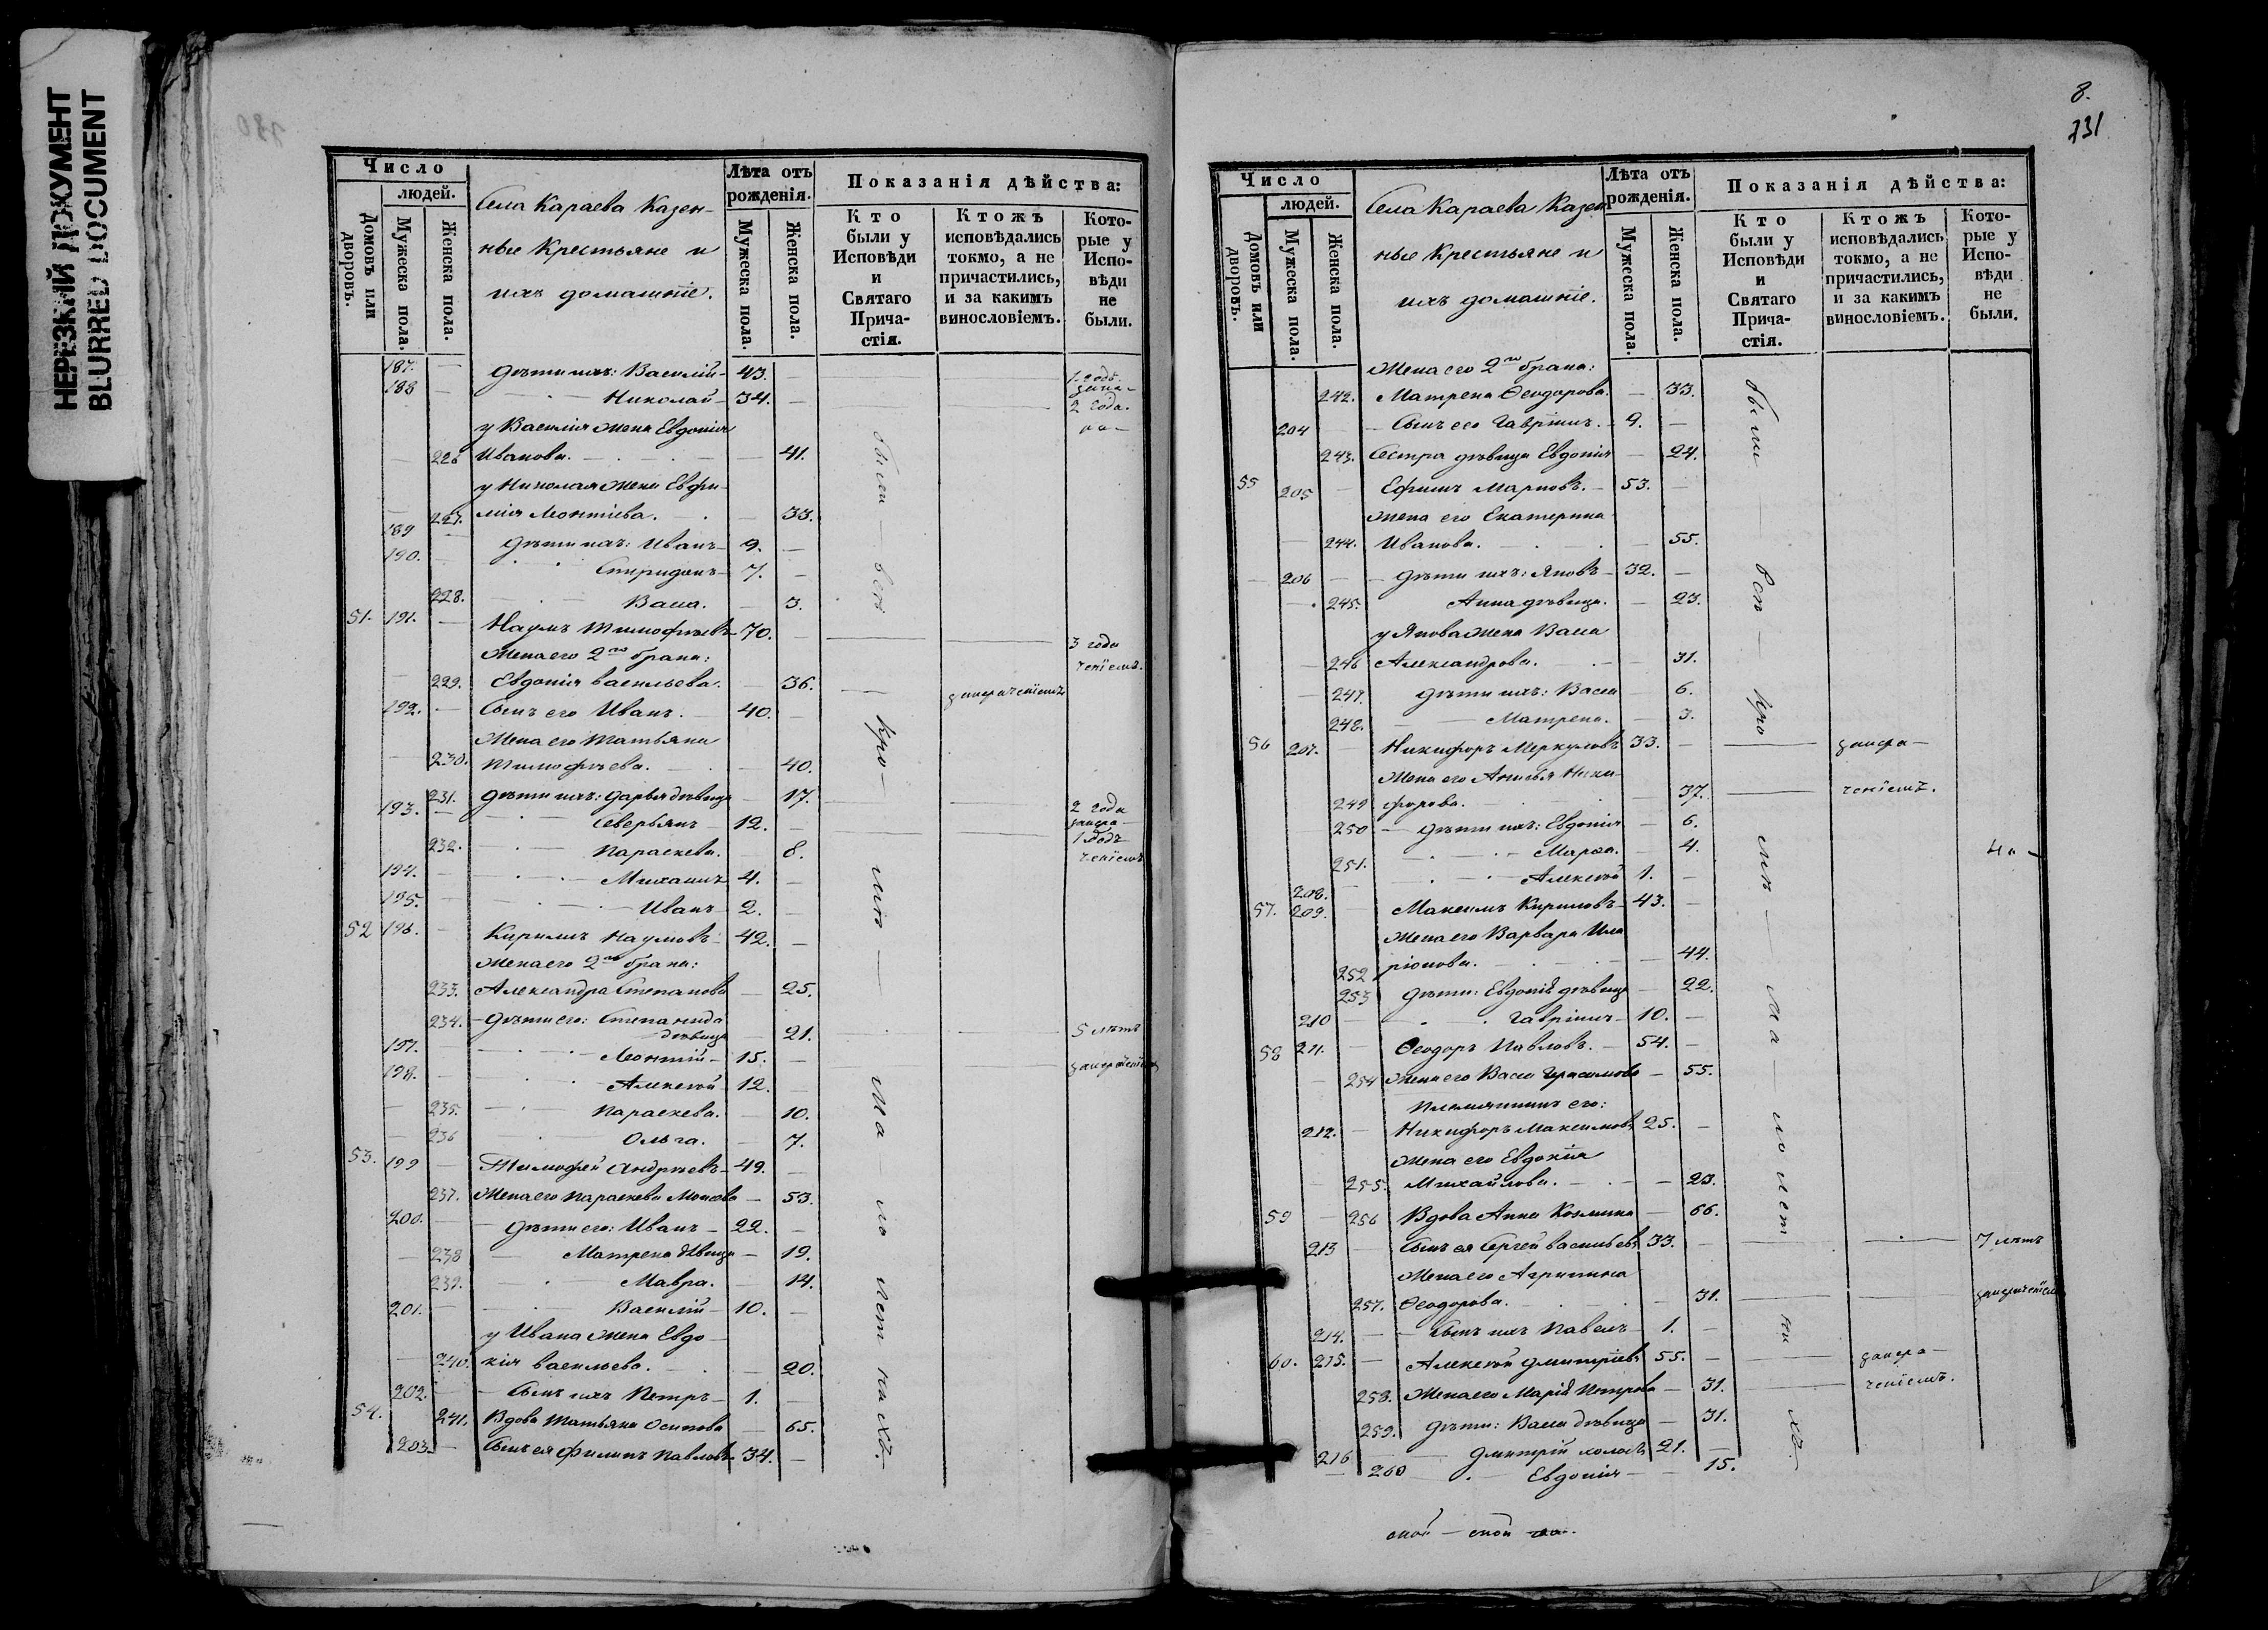 НЕРЕЗКИЙ ДОКУМЕНТ
BLURRED DOCUMENT
Число
людей.
Домовъ или дворовъ.
Мужеска пола.
Женска пола.
Села Караева Казен-
ные Крестьяне и
ихъ домашніе.
Лѣта отъ рожденія.
Мужеска пола.
Женска пола.
Показанія дѣйства:
Кто были у Исповѣди и Святаго Причастія.
Ктожъ исповѣдались токмо, а не причастились, и за какимъ винословіемъ.
Которые у Исповѣди не были.
187. дѣти ихъ: Василій 43. 1 годъ
188 Николай 34. 2 года
у Василія жена Евдокія
226 Иванова. 41.
у Николая жена Евфи-
227. мія Леонтіева. 33.
189 дѣти ихъ: Иванъ 9.
190. Спиридонъ 7.
228. Васса. 3.
51. 191. Наумъ Тимофѣевъ 70. 3 года
Жена его 2го брака:
229. Евдокія Васильева. 36.
192. Сынъ его Иванъ. 40.
Жена его Татьяна
230. Тимофѣева. 40.
231. дѣти ихъ: Дарья дѣвица 17. 2 года
193. Северьянъ 12. 1 годъ
232. Параскева. 8.
194. Михаилъ 4.
195. Иванъ 2.
52 196. Кирилъ Наумовъ 42.
Жена его 2го брака:
233. Александра Степанова 25.
234. дѣти его: Степанида
дѣвица 21. 5 лѣтъ
197. Леонтій 15.
198. Алексѣй 12.
235. Параскева. 10.
236 Ольга. 7.
53. 199 Тимофей Андреевъ 49.
237. Жена его Параскева Моисеева 53.
200. дѣти его: Иванъ 22.
238 Матрена дѣвица 19.
239. Мавра. 14.
201. Василій 10.
у Ивана жена Евдо-
240. кія Васильева. 20.
202. Сынъ ихъ Петръ 1.
54. 241. Вдова Татьяна Осипова 65.
203. Сынъ ея Филипъ Павловъ 34.
8.
731
Число
людей.
Домовъ или дворовъ.
Мужеска пола.
Женска пола.
Села Караева Казен
ные Крестьяне и
ихъ домашніе.
Лѣта отъ рожденія.
Мужеска пола.
Женска пола.
Показанія дѣйства:
Кто были у Исповѣди и Святаго Причастія.
Ктожъ исповѣдались токмо, а не причастились, и за какимъ винословіемъ.
Которые у Исповѣди не были.
Жена его 2го брака:
242. Матрена Ѳеодорова. 33.
204 Сынъ его Гавріилъ. 9.
243. Сестра дѣвица Евдокія 24.
55 205 Ефимъ Марковъ. 53.
Жена его Екатерина
244. Иванова. 55.
206 дѣти ихъ: Яковъ 32.
245. Анна дѣвица. 23.
у Якова жена Васса
246 Александрова. 31.
247. дѣти ихъ: Васса 6.
248. Матрена. 3.
56 207. Никифоръ Меркуловъ 33.
Жена его Анисья Ники-
249 форова. 37.
250 дѣти ихъ: Евдокія 6.
251. Марѳа. 4.
208. Алексѣй 1.
57. 209. Максимъ Кириловъ 43.
Жена его Варвара Ила
252 ріонова. 44.
253 дѣти: Евдокія дѣвица 22.
210 Гавріилъ 10.
58 211. Ѳеодоръ Павловъ. 54.
254 Жена его Васса Герасимова 55.
Племянникъ его:
212. Никифоръ Максимовъ 25.
Жена его Евдокія
255. Михайлова. 23.
59 256 Вдова Анна Козмина 66.
213 Сынъ ея Сергей Васильевъ 33. 7 лѣтъ
Жена его Агрипина
257. Ѳеодорова. 31.
214. Сынъ ихъ Павелъ 1.
60. 215. Алексѣй Дмитріевъ 55.
258. Жена его Марія Петрова 31.
259. дѣти: Васса дѣвица 31.
216 Дмитрій холостъ 21.
260 Евдокія 15.